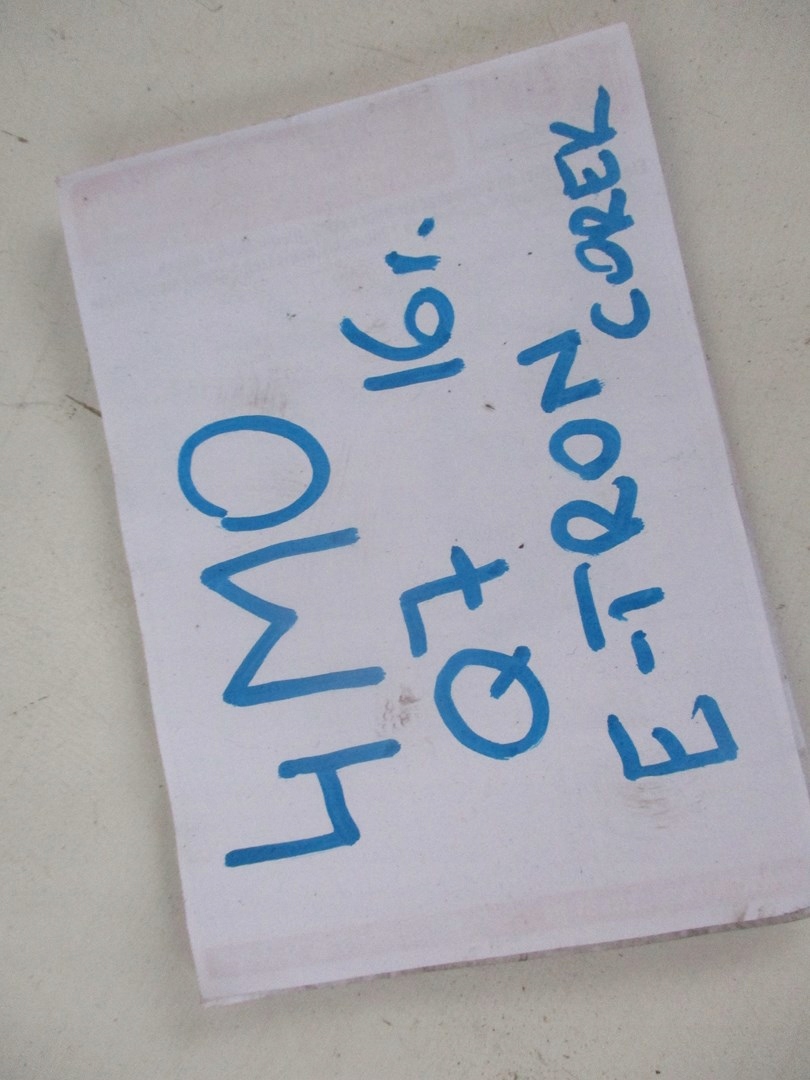 4M0
Q7 16r.
E-TRON COREK